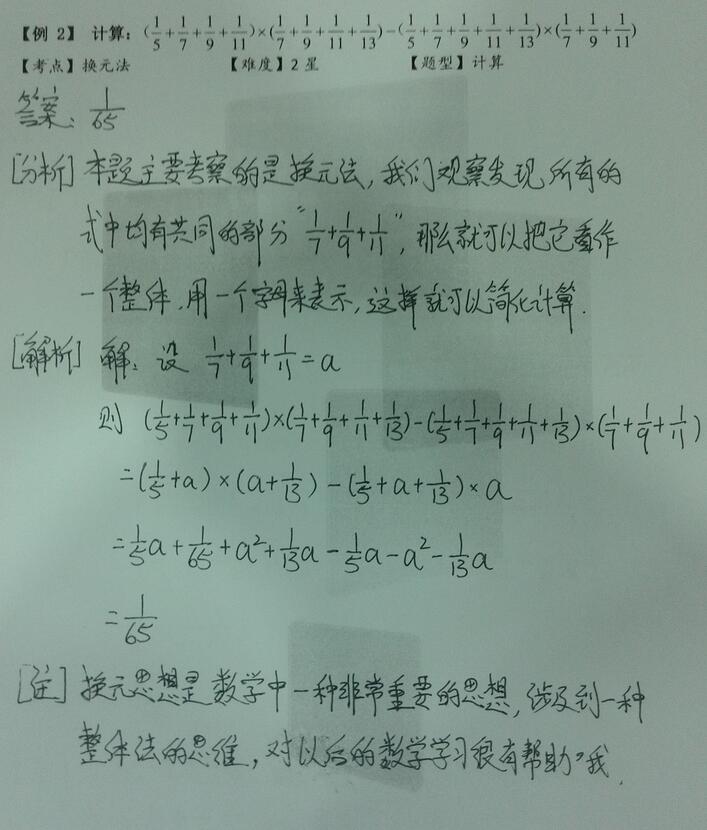 【例 2】 计算：(1/5+1/7+1/9+1/11)×(1/7+1/9+1/11+1/13)-(1/5+1/7+1/9+1/11+1/13)×(1/7+1/9+1/11)
【考点】换元法 【难度】2 星 【题型】计算
答案：1/65
[分析] 本题主要考察的是换元法，我们观察发现所有的
式中均有共同的部分“1/7+1/9+1/11”，那么就可以把它看作
一个整体，用一个字母来表示，这样就可以简化计算．
[解析] 解：设 1/7+1/9+1/11=a
则 (1/5+1/7+1/9+1/11)×(1/7+1/9+1/11+1/13)-(1/5+1/7+1/9+1/11+1/13)×(1/7+1/9+1/11)
=(1/5+a)×(a+1/13)-(1/5+a+1/13)×a
=1/5a+1/65+a²+1/13a-1/5a-a²-1/13a
=1/65
[注] 换元思想是数学中一种非常重要的思想，涉及到一种
整体法的思维，对以后的数学学习很有帮助